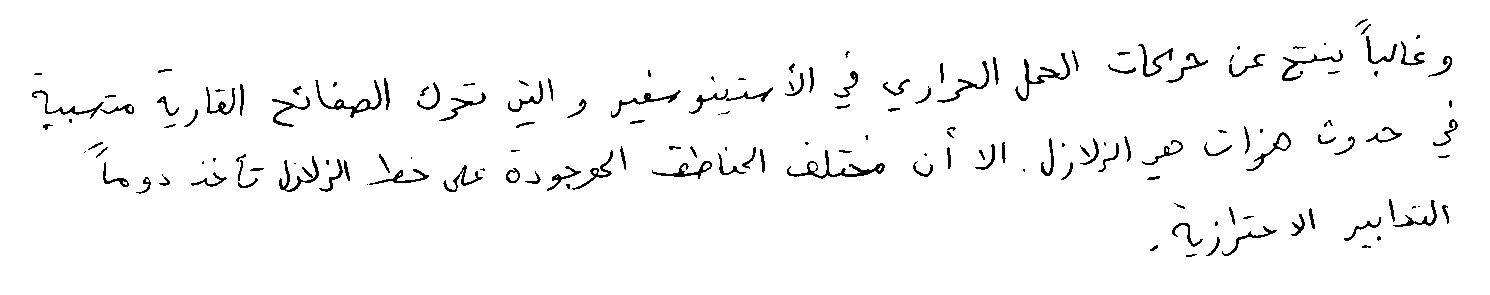 وغالباً ينتج عن حركات الحمل الحراري في الأستينوسفير والتي تحرك الصفائح القارية متسببة
في حدوث هزات هي الزلازل. الا أن مختلف المناطق الموجودة على خط الزلازل تأخذ دوماً
التدابير الاحترازية.